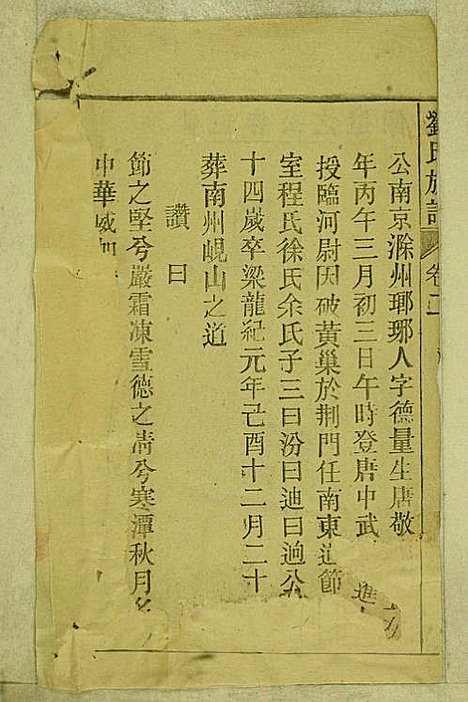 劉氏族譜 卷二
公南京滁州瑯琊人字德量生唐敬
年丙午三月初三日午時登唐中武 進
授臨河尉因破黃巢於荆門任南東道節
室程氏徐氏余氏子三曰汾曰迪曰逈公
十四歲卒梁龍紀元年己酉十二月二十
葬南州峴山之道
讚曰
節之堅兮嚴霜凍雪德之清兮寒潭秋月名
中華威